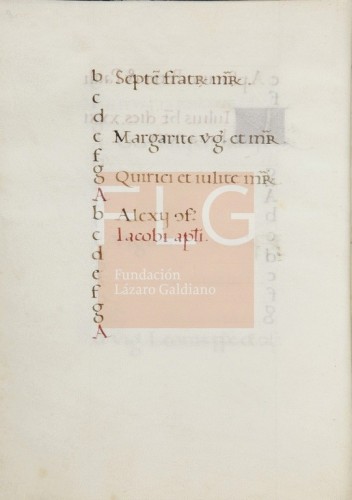 b Septē fratꝝ mꝝ̄.
c
d
e Margarite vg̃. et mꝝ̄
f
g Quirici et iulite mꝝ̄
A
b Alexij ꝯf.
c Iacobi apłi.
d
e
f
g
A
FLG
Fundación
Lázaro Galdiano